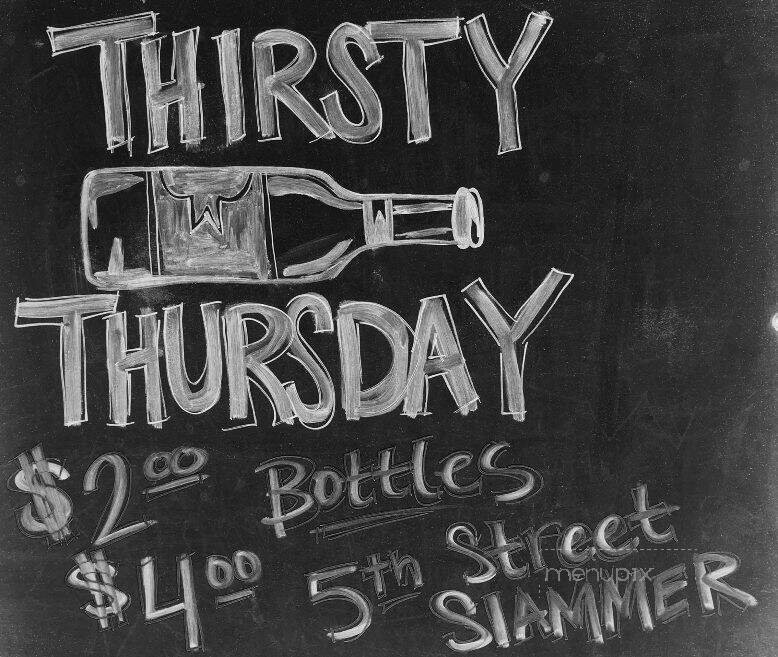 THIRSTY
W W
THURSDAY
$2.00 Bottles
$4.00 5th Street
menupix
SlAMMER